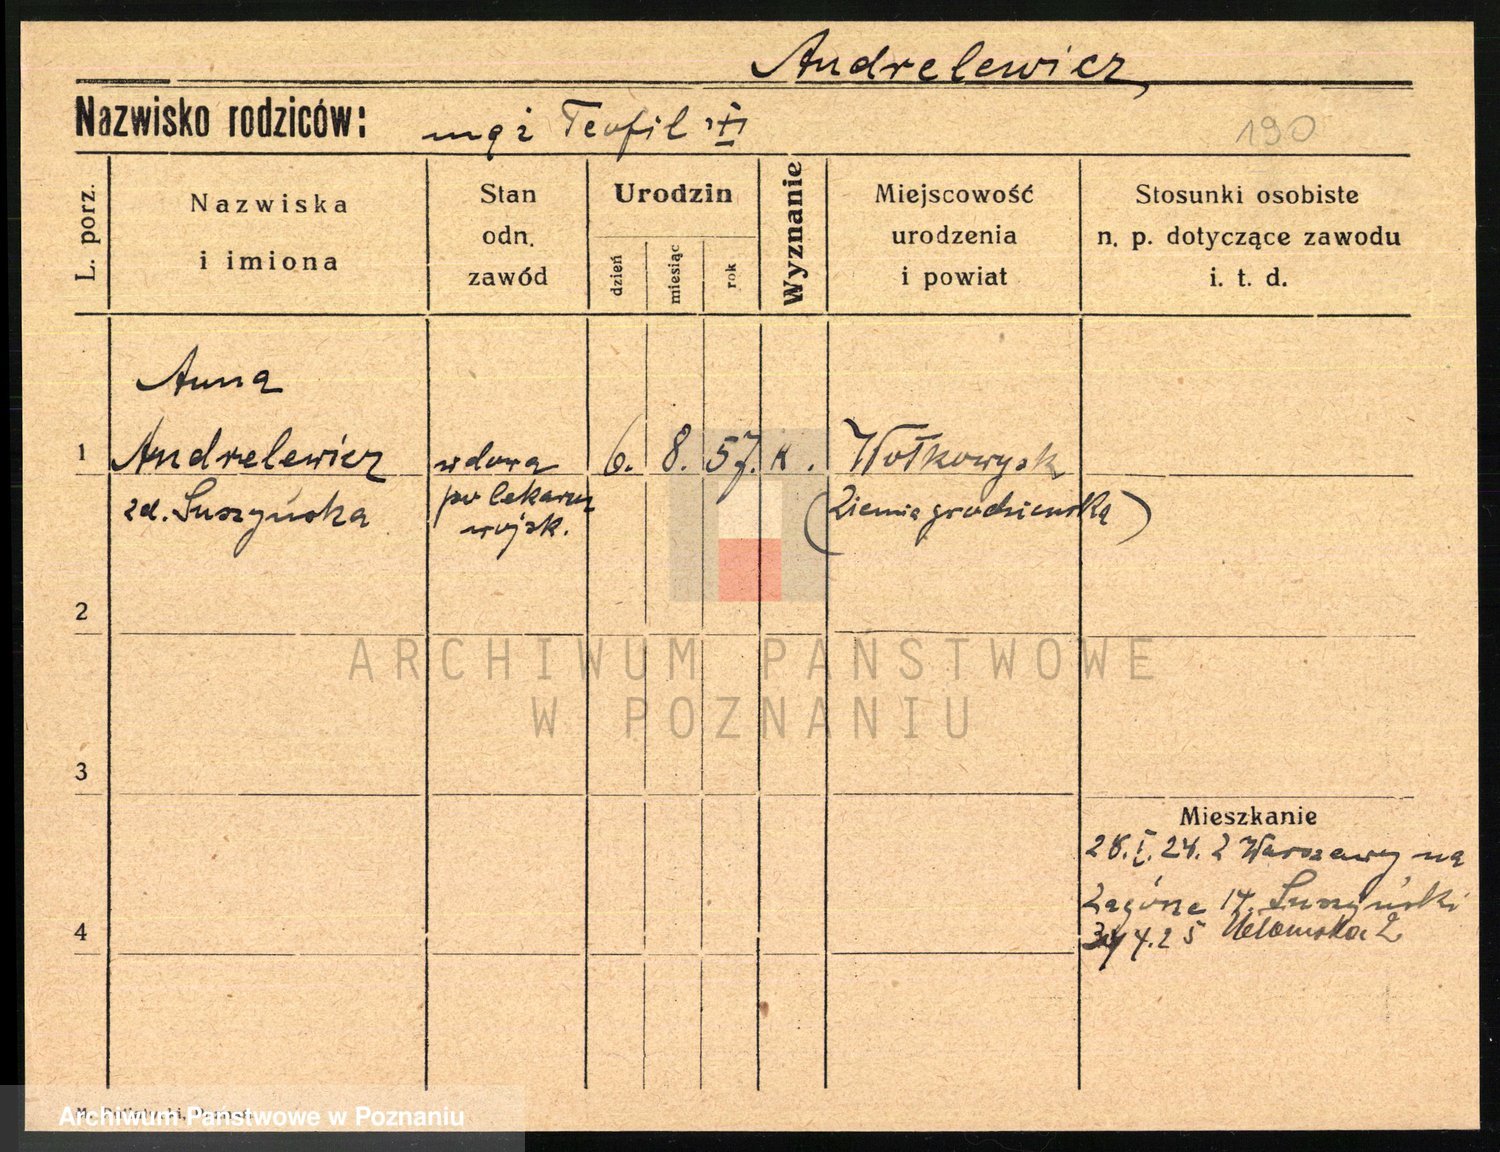 Andrelewicz
Nazwisko rodziców: mąż Teofil
190
L. porz.
Nazwiska
i imiona
Stan
odn.
zawód
Urodzin
dzień
miesiąc
rok
Wyznanie
Miejscowość
urodzenia
i powiat
Stosunki osobiste
n. p. dotyczące zawodu
i. t. d.
Anna
1 Andrelewicz wdowa 6. 8. 57. k. Wołkowysk
zd. Suszyńska po lekarzu (Ziemia grodzieńska)
wojsk.
2
ARCHIWUM PAŃSTWOWE
W POZNANIU
3
Mieszkanie
28.I.24. z Warszawy na
Zagórze 14. Suszyński
4
4.25
Archiwum Państwowe w Poznaniu